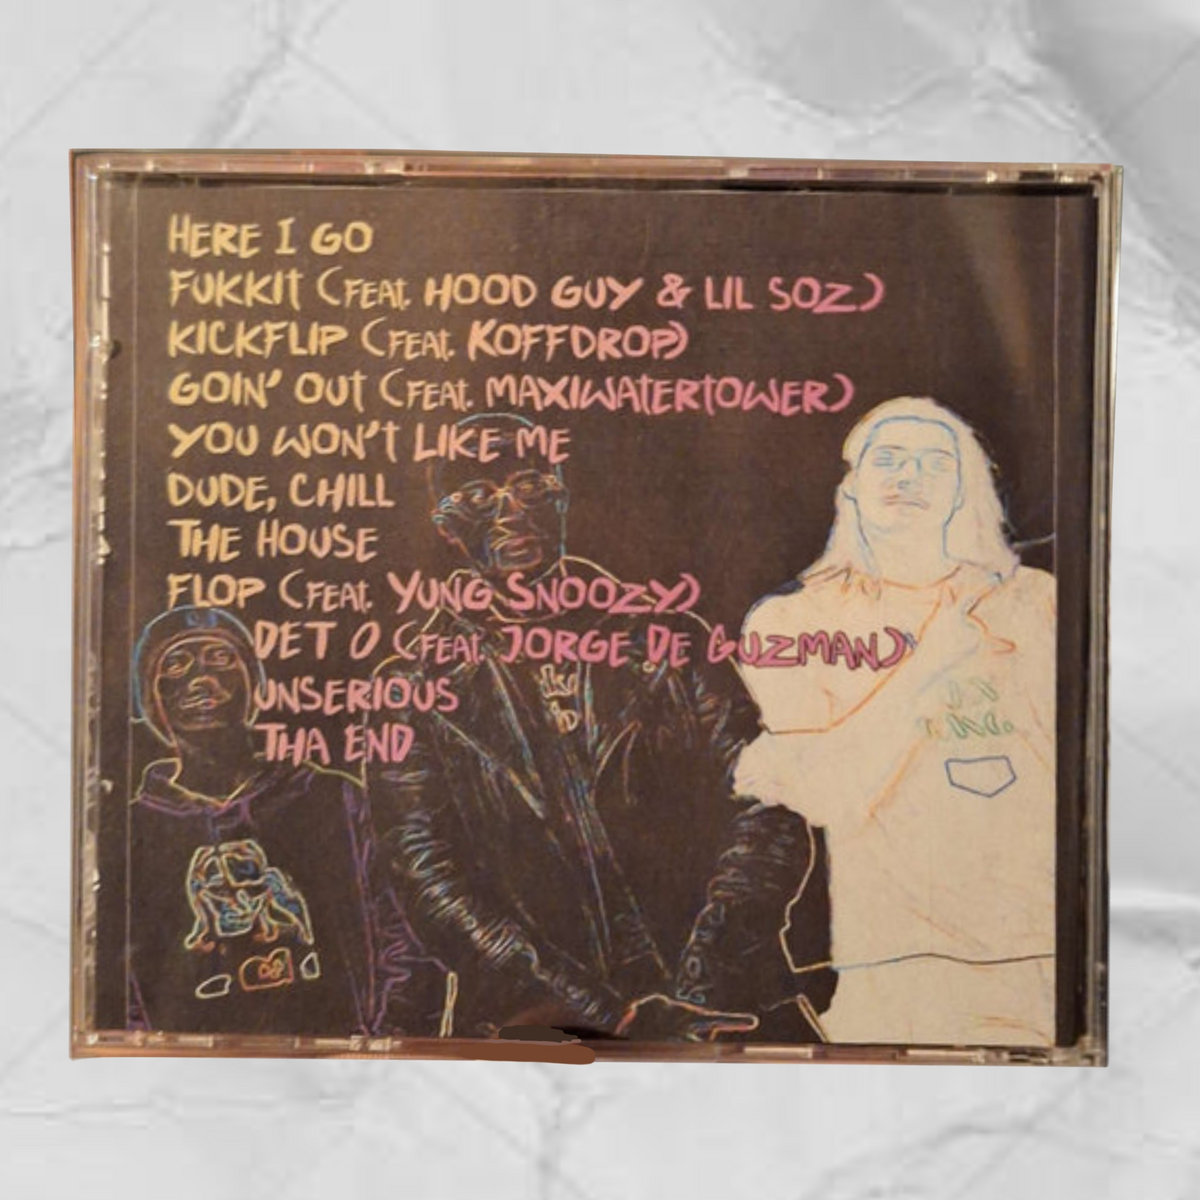 HERE I GO
FUKKIT (FEAT. HOOD GUY & LIL SOZ)
KICKFLIP (FEAT. KOFFDROP)
GOIN' OUT (FEAT. MAXIWATERTOWER)
YOU WON'T LIKE ME
DUDE, CHILL
THE HOUSE
FLOP (FEAT. YUNG SNOOZY)
DET O (FEAT. JORGE DE GUZMAN)
UNSERIOUS
THA END